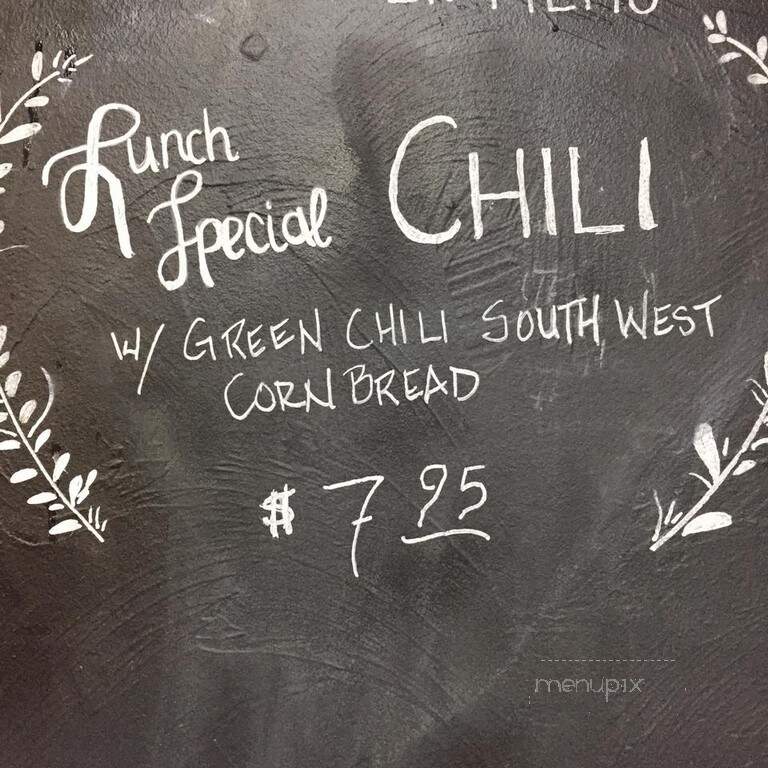 Lunch Special CHILI
W/ GREEN CHILI SOUTH WEST
CORN BREAD
$7 95
menupix